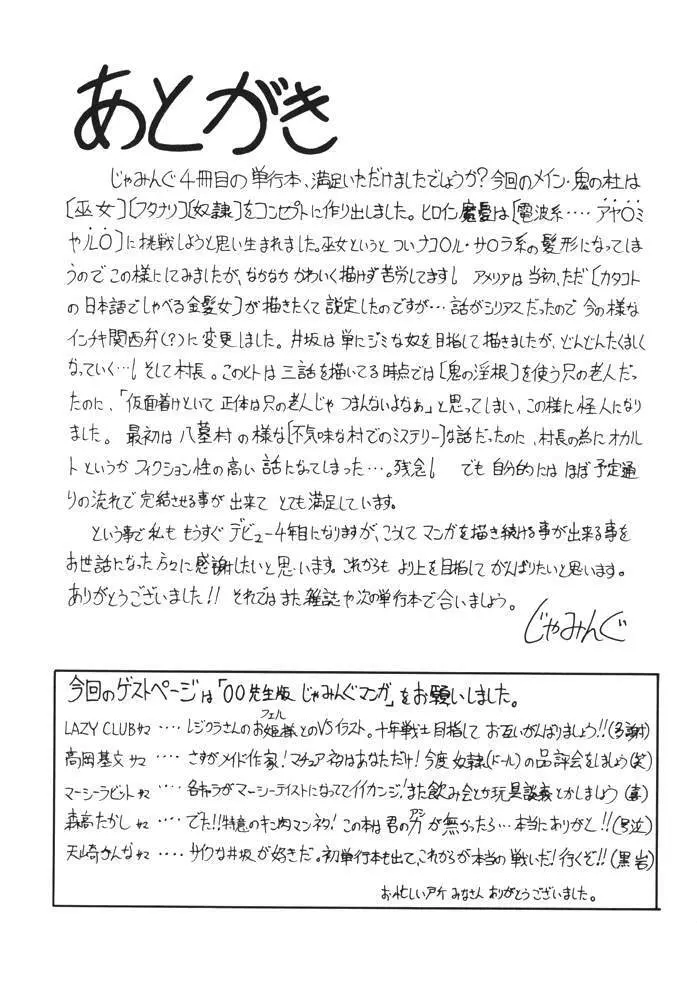 あとがき
じゃみんぐ4冊目の単行本、満足いただけましたでしょうか?今回のメイン・鬼の杜は
[巫女][フタナリ][奴隷]をコンセプトに作り出しました。ヒロイン魔憂は[電波系‥‥アヤ○ミ
やル○]に挑戦しようと思い生まれました。巫女というとついナコ○ル・サ○ラ系の髪形になってしま
うのでこの様にしてみましたが、なかなかかわいく描けず苦労してます! アメリアは当初、ただ[カタコト
の日本語でしゃべる金髪女]が描きたくて設定したのですが…話がシリアスだったので今の様な
インチキ関西弁(?)に変更しました。井坂は単にジミな奴を目指して描きましたが、どんどんたくましく
なっていく…!そして村長。このヒトは三話を描いてる時点では[鬼の淫根]を使う只の老人だっ
たのに、「仮面着けといて正体は只の老人じゃつまんないよなぁ」と思ってしまい、この様に怪人になり
ました。最初は八墓村の様な[不気味な村でのミステリー]な話だったのに、村長の為にオカル
トというかフィクション性の高い話になってしまった…。残念! でも自分的にはほぼ予定通
りの流れで完結させる事が出来てとても満足しています。
という事で私ももうすぐデビュー4年目になりますが、こうしてマンガを描き続ける事が出来る事を
お世話になった方々に感謝したいと思います。これからもより上を目指してがんばりたいと思います。
ありがとうございました!!それではまた雑誌や次の単行本で合いましょう。
じゃみんぐ
今回のゲストページは「○○先生版じゃみんぐマンガ」をお願いしました。
フェル
LAZY CLUBサマ‥‥レジクラさんのお姫様とのVSイラスト。十年戦士目指してお互いがんばりましょう!!(多謝)
高岡基文サマ‥‥さすがメイド作家!マチュア初はあなただけ!今度奴隷(ドール)の品評会をしましょう(笑)
マーシーラビットサマ‥‥各キャラがマーシーテイストになっててイイカンジ!また飲み会とか玩具談義とかしましょう(喜)
森高たかしサマ‥‥でた!!特意のキン肉マンネタ!この本は君の力が無かったら…本当にありがと!!(号泣)
天崎かんなサマ‥‥サイクな井坂が好きだ。初単行本も出て、これからが本当の戦いだ!行くぞ!!(黒岩)
お忙しい中みなさんありがとうございました。